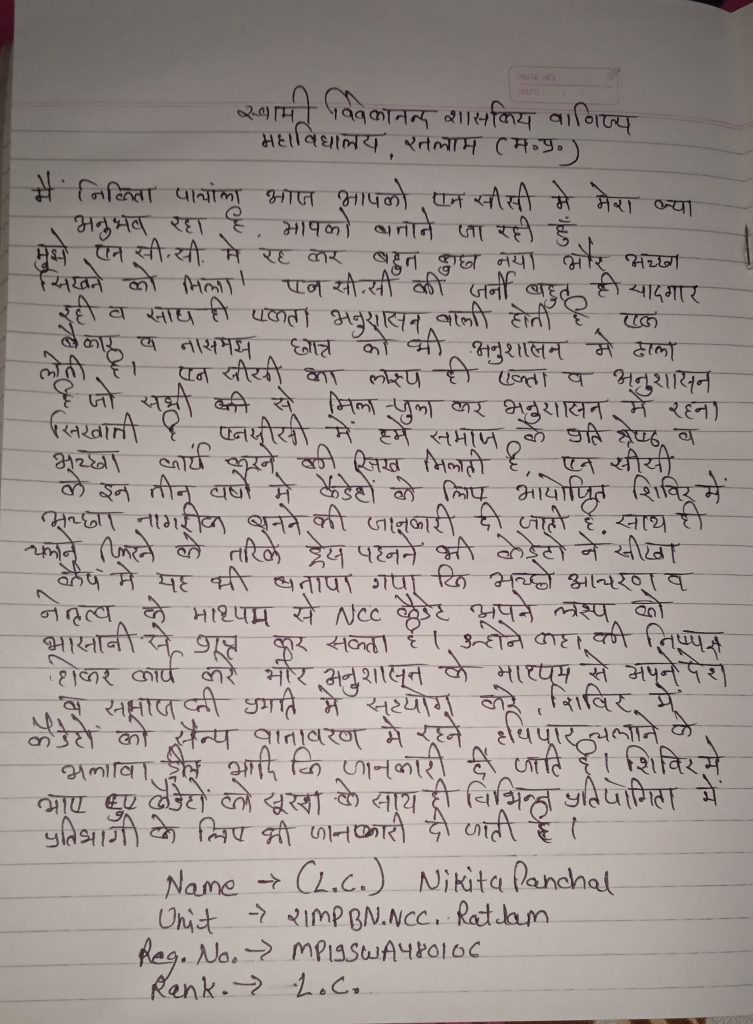 PAGE NO.:
DATE: / /
स्वामी विवेकानन्द शासकिय वाणिज्य
महाविधालय, रतलाम (म.प्र.)
मैं निकिता पांचाल आज आपको एन सीसी मे मेरा क्या
अनुभव रहा है, आपको बताने जा रही हुँ
मुझे एन सी.सी. मे रह कर बहुत कुछ नया और अच्छा
सिखने को मिला। एन सी.सी की जर्नी बहुत ही यादगार
रही व साथ ही एकता अनुशासन वाली होती है एक
बेकार व नासमझ छात्र को भी अनुशासन मे ढाल
लेती है। एन सीसी का लक्ष्य ही एकता व अनुशासन
है जो सभी की से मिला जुला कर अनुशासन में रहना
सिखाती है, एनसीसी में हमे समाज के प्रति श्रेष्ठ व
अच्छा कार्य करने की सिख मिलती है, एन सीसी
के इन तीन वर्षो मे कैडेटों के लिए आयोजित शिविर में
अच्छा नागरीक बनने की जानकारी दी जाती है, साथ ही
चलने फिरने के तरिके ड्रेस पहनने भी केडेटो ने सीखा
कैंप मे यह भी बताया गया कि अच्छे आचरण व
नेतृत्व के माध्यम से NCC कैडेट अपने लक्ष्य को
आसानी से प्राप्त कर सकता है। उन्होने कहा की निष्पक्ष
होकर कार्य करे और अनुशासन के माध्यम से अपने देश
व समाज की प्रगति मे सहयोग करे, शिविर में
कैडेटों को सैन्य वातावरण मे रहने हथियार चलाने के
अलावा ड्रील आदि कि जानकारी दी जाति है। शिविर मे
आए हुए कैडेटों को सुरक्षा के साथ ही विभिन्न प्रतियोगिता में
प्रतिभागी के लिए भी जानकारी दी जाती है।
Name → (L.C.) Nikita Panchal
Unit → 21MPBN.NCC. Ratlam
Reg. No. → MP19SWA480106
Rank. → L.C.